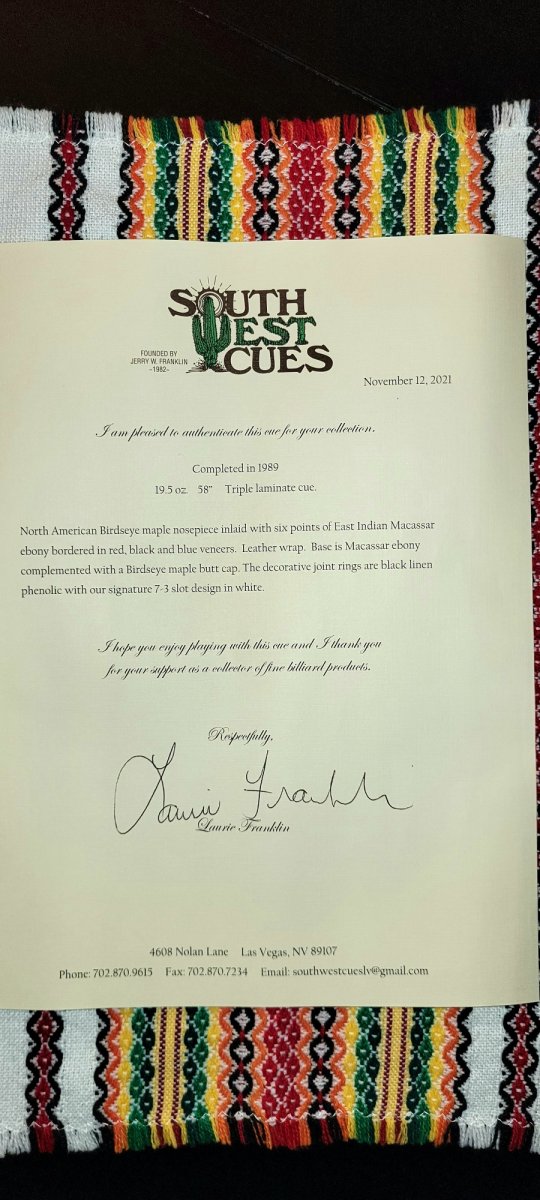 SOUTH
WEST
CUES
FOUNDED BY
JERRY W. FRANKLIN
-1982-
November 12, 2021
I am pleased to authenticate this cue for your collection.
Completed in 1989
19.5 oz. 58" Triple laminate cue.
North American Birdseye maple nosepiece inlaid with six points of East Indian Macassar
ebony bordered in red, black and blue veneers. Leather wrap. Base is Macassar ebony
complemented with a Birdseye maple butt cap. The decorative joint rings are black linen
phenolic with our signature 7-3 slot design in white.
I hope you enjoy playing with this cue and I thank you
for your support as a collector of fine billiard products.
Respectfully,
Laurie Franklin
Laurie Franklin
4608 Nolan Lane Las Vegas, NV 89107
Phone: 702.870.9615 Fax: 702.870.7234 Email: southwestcueslv@gmail.com